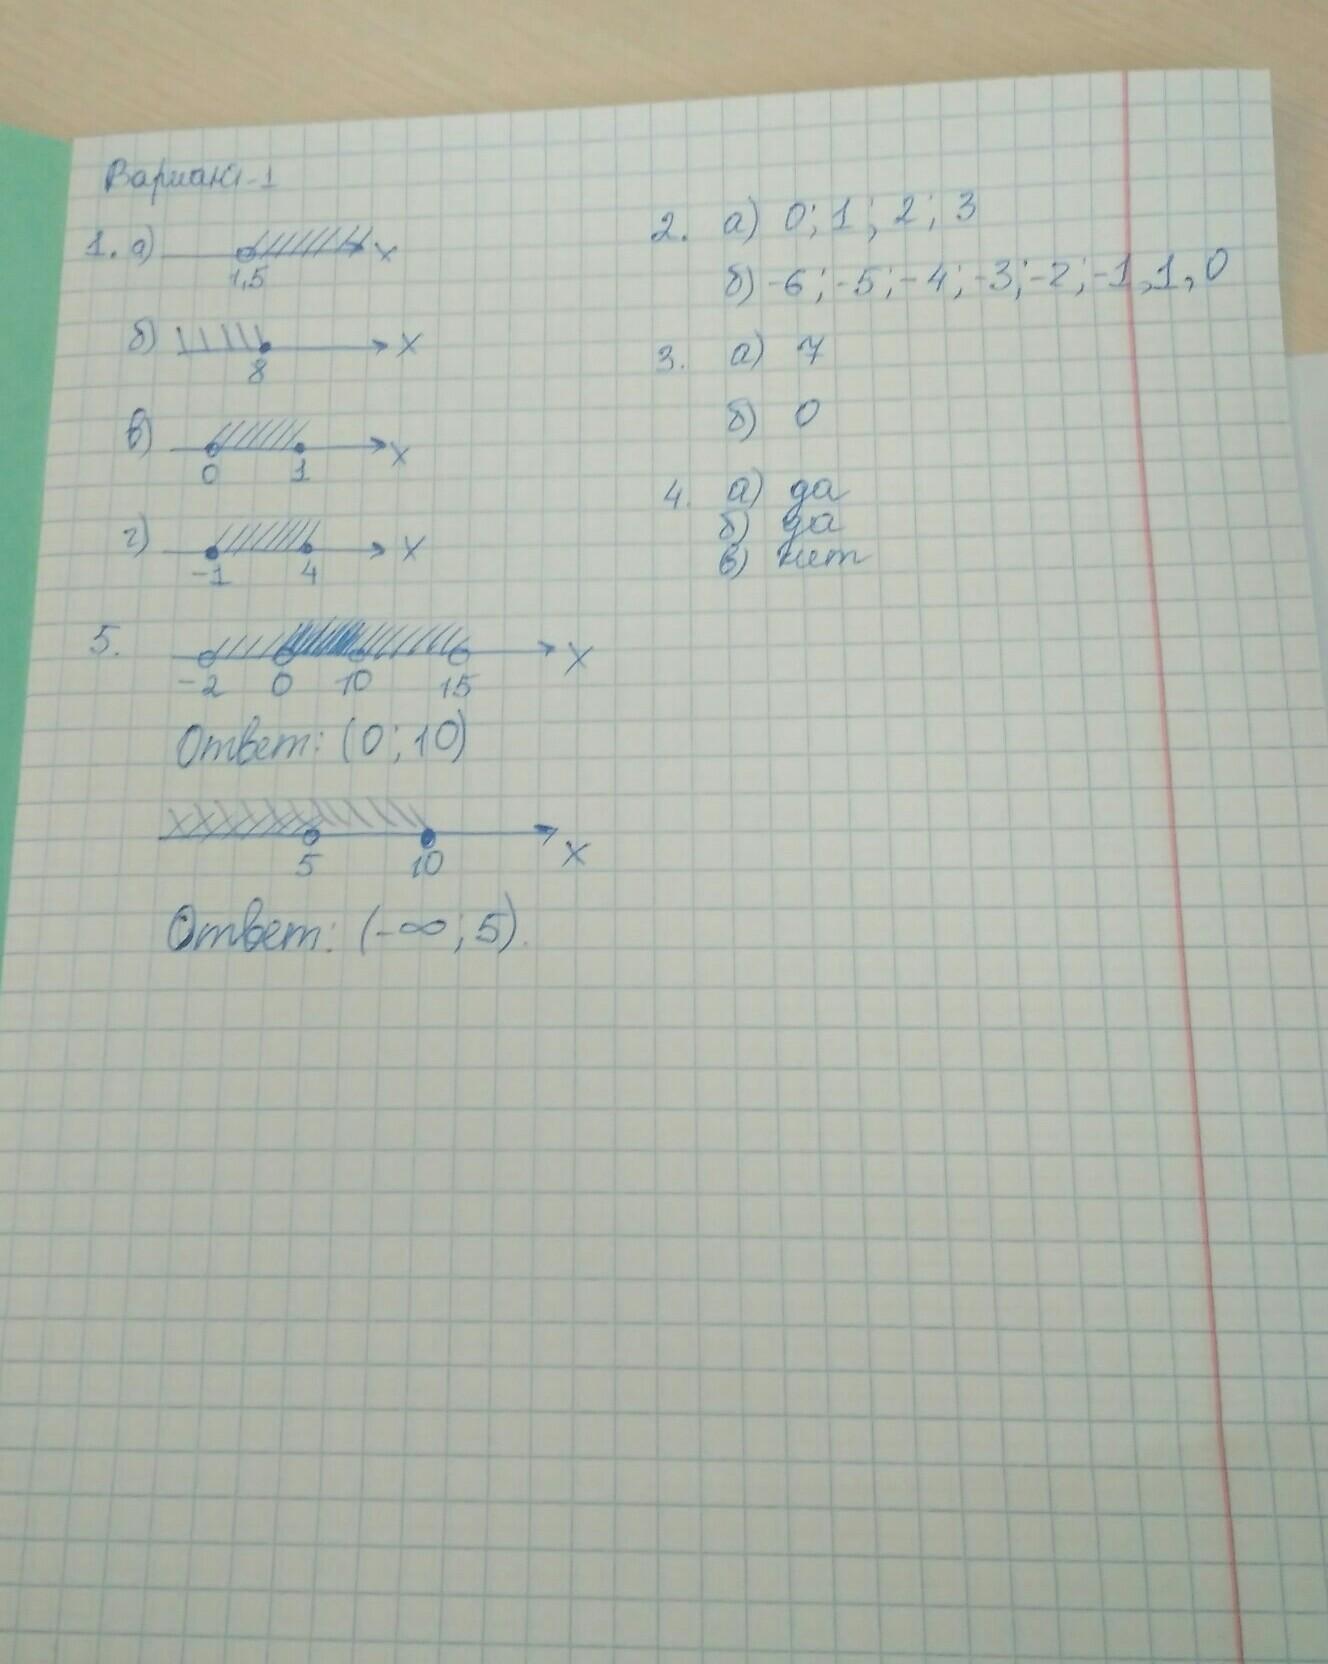 Вариант-1
1. а) x
1,5
б) x
8
в) x
0 1
г) x
-1 4
2. а) 0; 1; 2; 3
б) -6; -5; -4; -3; -2; -1, 1, 0
3. а) 7
б) 0
4. а) да
б) да
в) нет
5. x
-2 0 10 15
Ответ: (0; 10)
x
5 10
Ответ: (-∞; 5).